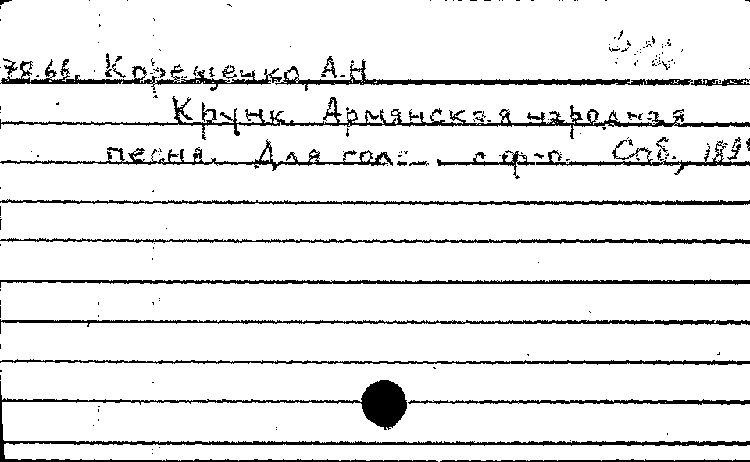 78.66. Корещенко, А.Н
Крунк. Армянская народная
песня. Для голс. с ф-п. Спб.,